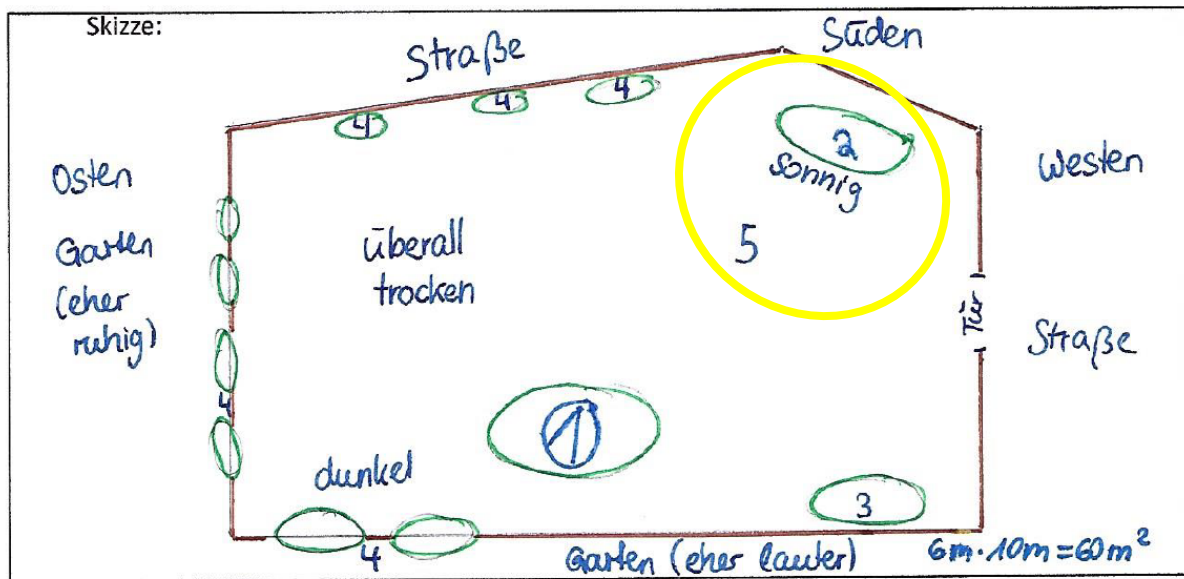 Skizze:
Straße
Süden
4 4 4
2
sonnig
Osten
Westen
Garten
(eher
ruhig)
überall
trocken
5
Tür
Straße
4
1
dunkel
3
4
Garten (eher lauter)
6m · 10m = 60m²